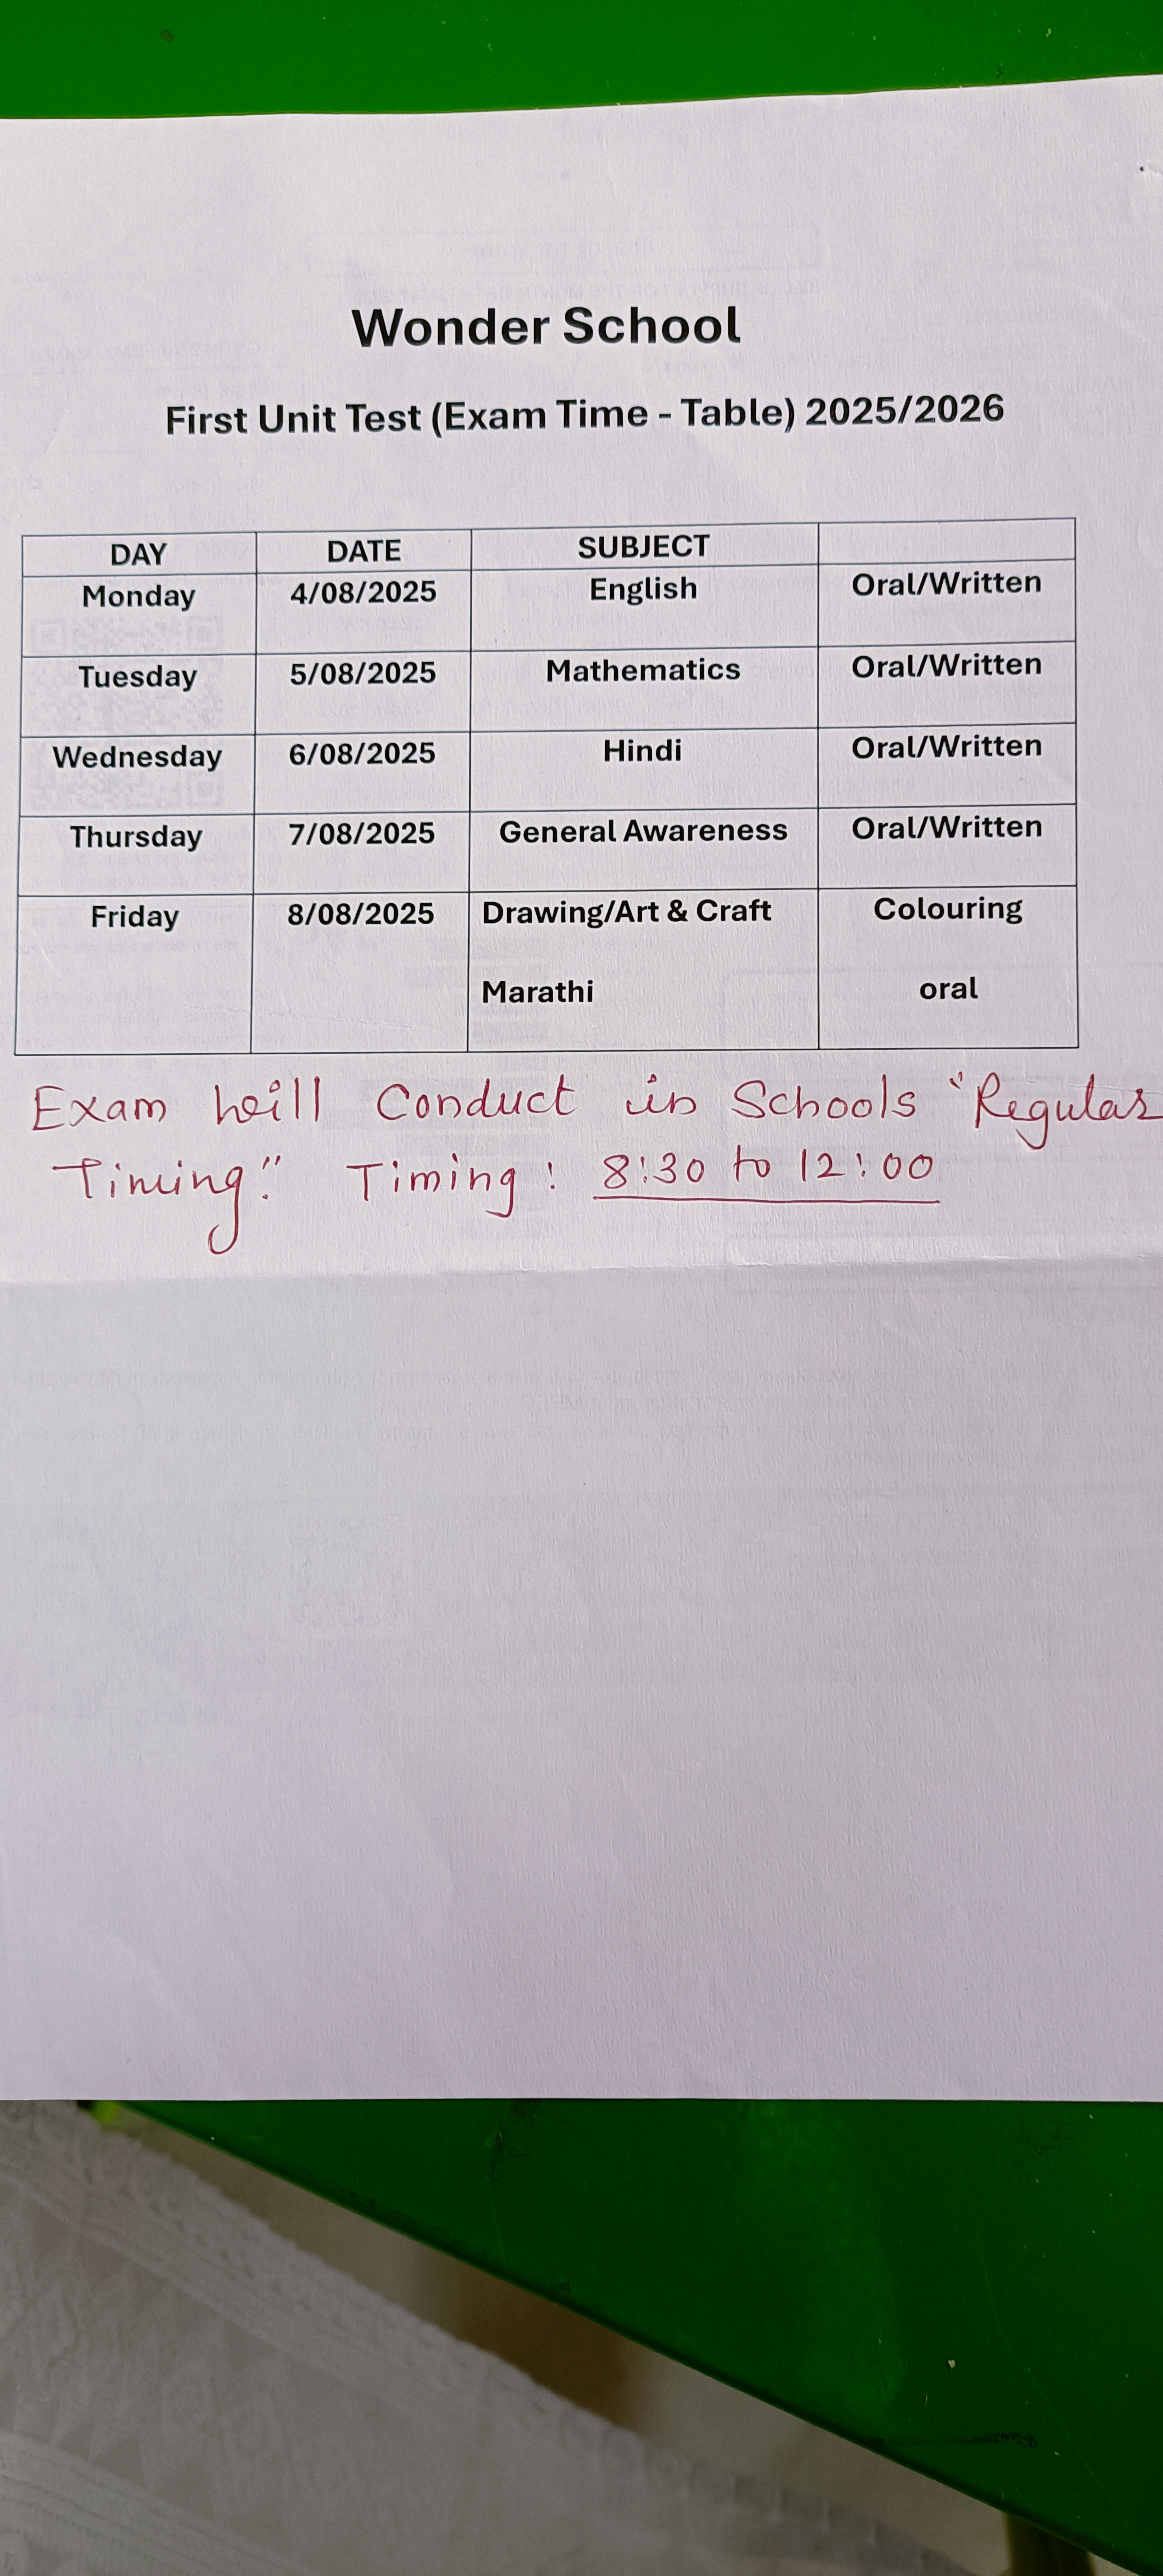 Wonder School
First Unit Test (Exam Time - Table) 2025/2026
DAY DATE SUBJECT
Monday 4/08/2025 English Oral/Written
Tuesday 5/08/2025 Mathematics Oral/Written
Wednesday 6/08/2025 Hindi Oral/Written
Thursday 7/08/2025 General Awareness Oral/Written
Friday 8/08/2025 Drawing/Art & Craft Colouring
Marathi oral
Exam will Conduct in Schools "Regular
Timing." Timing : 8:30 to 12:00